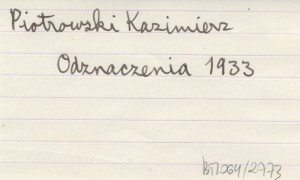 Piotrowski Kazimierz
Odznaczenia 1933
BTL069/2773